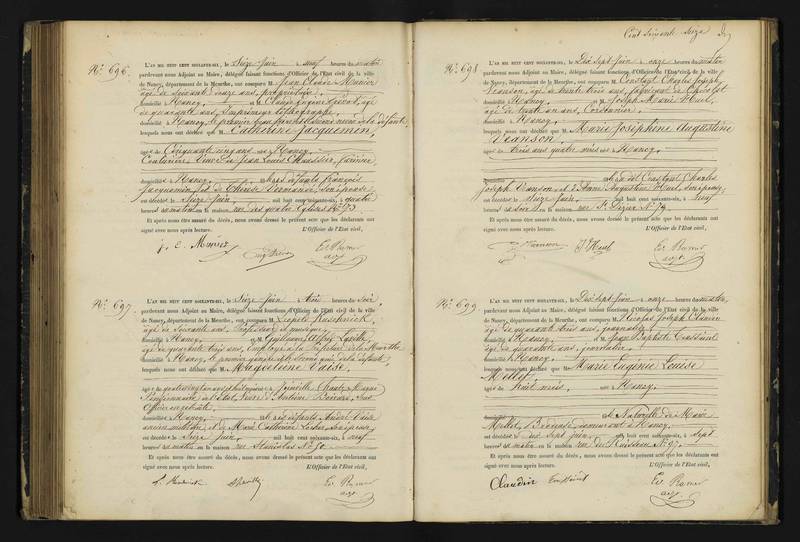 N.° 696.
L'AN MIL HUIT CENT SOIXANTE-SIX, le Seize Juin à neuf heures du matin
pardevant nous Adjoint au Maire, délégué faisant fonctions d'Officier de l'Etat civil de la ville
de Nancy, département de la Meurthe, ont comparu M. Jean Claude
âgé de soixante onze ans, propriétaire,
domicilié à Nancy, et M. Claude Eugène âgé
de quarante ans, Imprimeur lithographe
domicilié à Nancy,
lesquels nous ont déclaré que M. Catherine Jacquemin,
âgée de Cinquante cinq ans née à Nancy,
Couturière, Jean Louis
domiciliée à Nancy, François
Jacquemin, et de Thérèse son épouse
est décédée le Seize Juin, mil huit cent soixante-six, à quatre
heures du matin en la maison rue des quatre Eglises N° 73.
Et après nous être assuré du décès, nous avons dressé le présent acte que les déclarants ont
signé avec nous après lecture. L'Officier de l'Etat civil,
Ev Ramer
adjt
N.° 697.
L'AN MIL HUIT CENT SOIXANTE-SIX, le Seize Juin à trois heures du soir,
pardevant nous Adjoint au Maire, délégué faisant fonctions d'Officier de l'Etat civil de la ville
de Nancy, département de la Meurthe, ont comparu M. Léopold
âgé de soixante ans, Professeur de musique,
domicilié à Nancy, et M. Guillaume
âgé de quarante trois ans, employé à la Préfecture de la Meurthe
domicilié à Nancy, le premier gendre et le second ami de la défunte,
lesquels nous ont déclaré que M. Magdeleine Vaise,
âgée de née à Joinville Haute Marne
Pensionnaire de l'Etat, Veuve d'Antoine
Officier en retraite,
domiciliée à Nancy, André Vaise
ancien militaire, et de Marie Catherine son épouse
est décédée le Seize Juin, mil huit cent soixante-six, à neuf
heures du matin en la maison rue Stanislas N° 50.
Et après nous être assuré du décès, nous avons dressé le présent acte que les déclarants ont
signé avec nous après lecture. L'Officier de l'Etat civil,
Ev Ramer
adjt
Cent soixante seize
N.° 698
L'AN MIL HUIT CENT SOIXANTE-SIX, le Dix sept Juin à onze heures du matin
pardevant nous Adjoint au Maire, délégué faisant fonctions d'Officier de l'Etat civil de la ville
de Nancy, département de la Meurthe, ont comparu M. Constant Charles Joseph
âgé de trente trois ans, fabricant de Chocolat
domicilié à Nancy, et M. Joseph Marie
âgé de trente ans, Cordonnier,
domicilié à Nancy,
lesquels nous ont déclaré que M. Marie Joséphine Augustine
âgée de trois ans quatre mois née à Nancy,
domiciliée Constant Charles
Joseph et d'Anne Augustine son épouse,
est décédée le Seize Juin, mil huit cent soixante-six, à neuf
heures du soir en la maison rue St Dizier N° 79.
Et après nous être assuré du décès, nous avons dressé le présent acte que les déclarants ont
signé avec nous après lecture. L'Officier de l'Etat civil,
Ev Ramer
adjt
N.° 699
L'AN MIL HUIT CENT SOIXANTE-SIX, le Dix sept Juin à onze heures du matin,
pardevant nous Adjoint au Maire, délégué faisant fonctions d'Officier de l'Etat civil de la ville
de Nancy, département de la Meurthe, ont comparu M. Nicolas Joseph Claudin
âgé de quarante trois ans, journalier
domicilié à Nancy, et M. Jean Baptiste
âgé de quarante ans, journalier
domicilié à Nancy,
lesquels nous ont déclaré que Marie Eugénie Louise
Millet,
âgée de huit mois, née à Nancy,
domiciliée fille Naturelle de Marie
Millet, demeurant à Nancy,
est décédée le dix sept Juin, mil huit cent soixante-six, à sept
heures du matin en la maison rue du Ruisseau N° 27.
Et après nous être assuré du décès, nous avons dressé le présent acte que les déclarants ont
signé avec nous après lecture. L'Officier de l'Etat civil,
Claudin
Ev Ramer
adjt